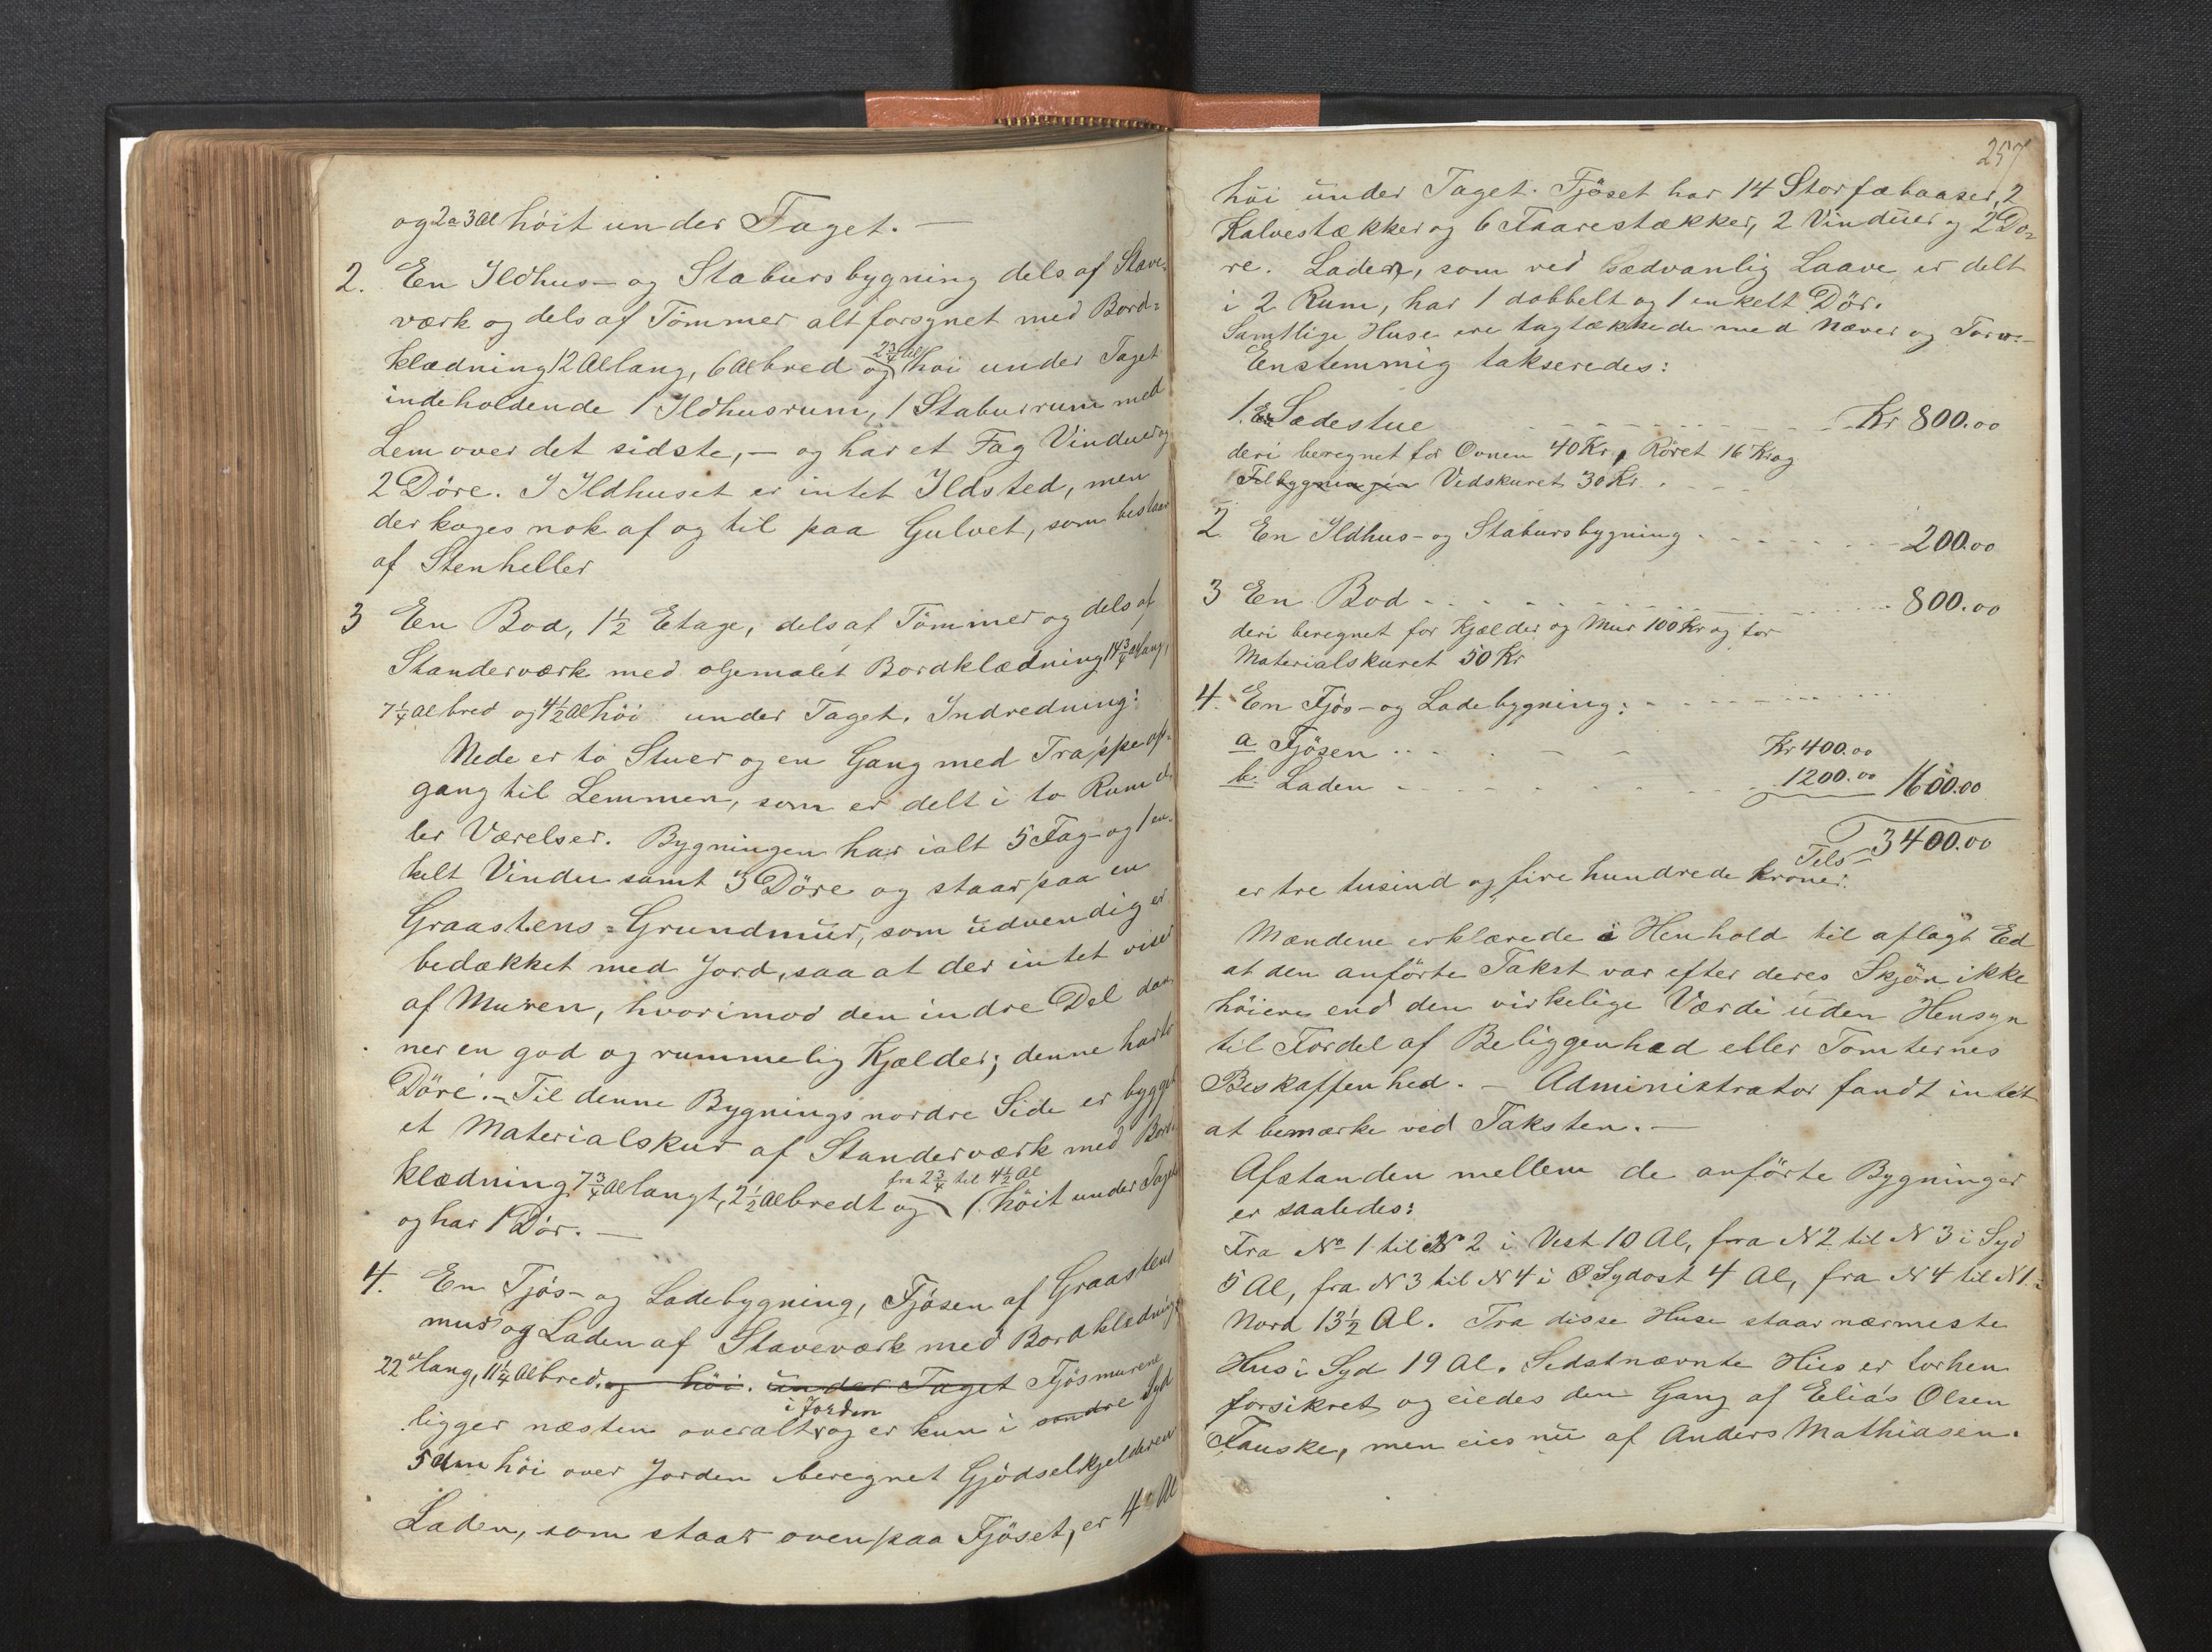 og 2 a 3 Al höit under Taget. —
2. En Ildhus- og Stabursbygning dels af Stave-
værk og dels af Tömmer alt forsynet med Bord=
klædning 12 Al lang, 6 Al bred og 2 3/4 Al höi under Taget
indeholdende 1 Ildhusrum, 1 Stabursrum med
Lem over det sidste, — og har et Fag Vinduer og
2 Döre. I Ildhuset er intet Ildsted, men
der koges nok af og til paa Gulvet, som bestaar
af Stenheller
3 En Bod, 1 1/2 Etage, dels af Tömmer og dels af
Standerværk med oljemalet Bordklædning 14 3/4 Al lang,
7 1/4 Al bred og 4 1/2 Al höi under Taget. Indredning:
Nede er to Stuer og en Gang med Trappeop-
gang til Lemmen, som er delt i to Rum el-
ler Værelser. Bygningen har ialt 5 Fag- og 1 en-
kelt Vindu samt 3 Döre og staar paa en
Graastens=Grundmur, som udvendig er
bedækket med Jord, saa at der intet viser
af Muren, hvorimod den indre Del dan-
ner en god og rummelig Kjælder; denne har to
Döre. — Til denne Bygnings nordre Side er bygget
et Materialskur af Standerværk med Bord-
klædning 7 3/4 Al langt, 2 1/2 Al bredt og fra 2 3/4 til 4 1/2 Al höit under Taget
og har 1 Dör. —
4. En Fjös- og Ladebygning, Fjösen af Graastens
mur og Laden af Staveværk med Bordklædning
22 al lang, 11 1/4 Al bred. og höi. under Taget Fjösmurene
ligger næsten overalt i Jorden og er kun i søndre Syd
5 Alen höi over Jorden iberegnet Gjödselkjelderen
Laden, som staar ovenpaa Fjöset, er 4 Al
257
höi under Taget. Fjöset har 14 Storfæbaaser, 2
Kalvestækker og 6 Faarestækker, 2 Vinduer og 2 Dö=
re. Laden, som ved sædvanlig Laave er delt
i 2 Rum, har 1 dobbelt og 1 enkelt Dör.
Samtlige Huse ere tagtækkede med Næver og Torv. —
Eenstemmig takseredes:
1. En Sædestue Kr 800.00
deri beregnet for Ovnen 40 Kr, Röret 16 Kr og
Tilbygningen Vedskuret 30 Kr.
2 En Ildhus- og Stabursbygning 200.00
3 En Bod 800.00
deri beregnet for Kjælder og Mur 100 Kr og for
Materialskuret 50 Kr
4. En Fjös- og Ladebygning:
a Fjösen Kr 400.00
b. Laden 1200.00 1600.00
Tils 3400.00
er tre tusind og fire hundrede kroner.
Mændene erklærede i Henhold til aflagt Ed
at den anförte Takst var efter deres Skjön ikke
höiere end den virkelige Værdi uden Hensyn
til Fordel af Beliggenhed eller Tomternes
Beskaffenhed. — Administrator fandt intet
at bemærke ved Taksten. —
Afstanden mellem de anförte Bygninger
er saaledes:
Fra No 1 til No 2 i Vest 10 Al, fra N 2 til N 3 i Syd
5 Al, fra N 3 til N 4 i Sydost 4 Al, fra N 4 til N 1 i
Nord 13 1/2 Al. Fra disse Huse staar nærmeste
Hus i Syd 19 Al. Sidstnævnte Hus er forhen
forsikret og eiedes den Gang af Elias Olsen
Fauske, men eies nu af Anders Mathiasen.